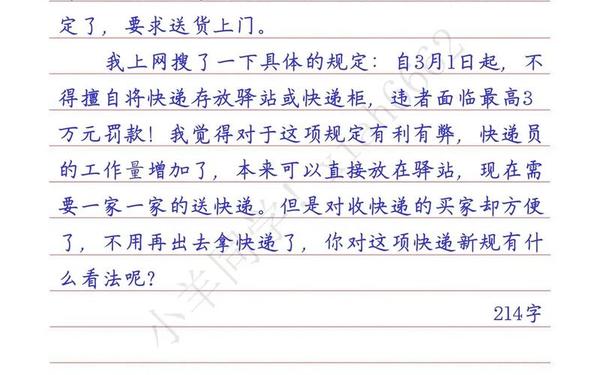 定了，要求送货上门。
我上网搜了一下具体的规定：自3月1日起，不
得擅自将快递存放驿站或快递柜，违者面临最高3
万元罚款！我觉得对于这项规定有利有弊，快递员
的工作量增加了，本来可以直接放在驿站，现在需
要一家一家的送快递。但是对收快递的买家却方便
了，不用再出去拿快递了，你对这项快递新规有什
么看法呢？
214字
小羊同学